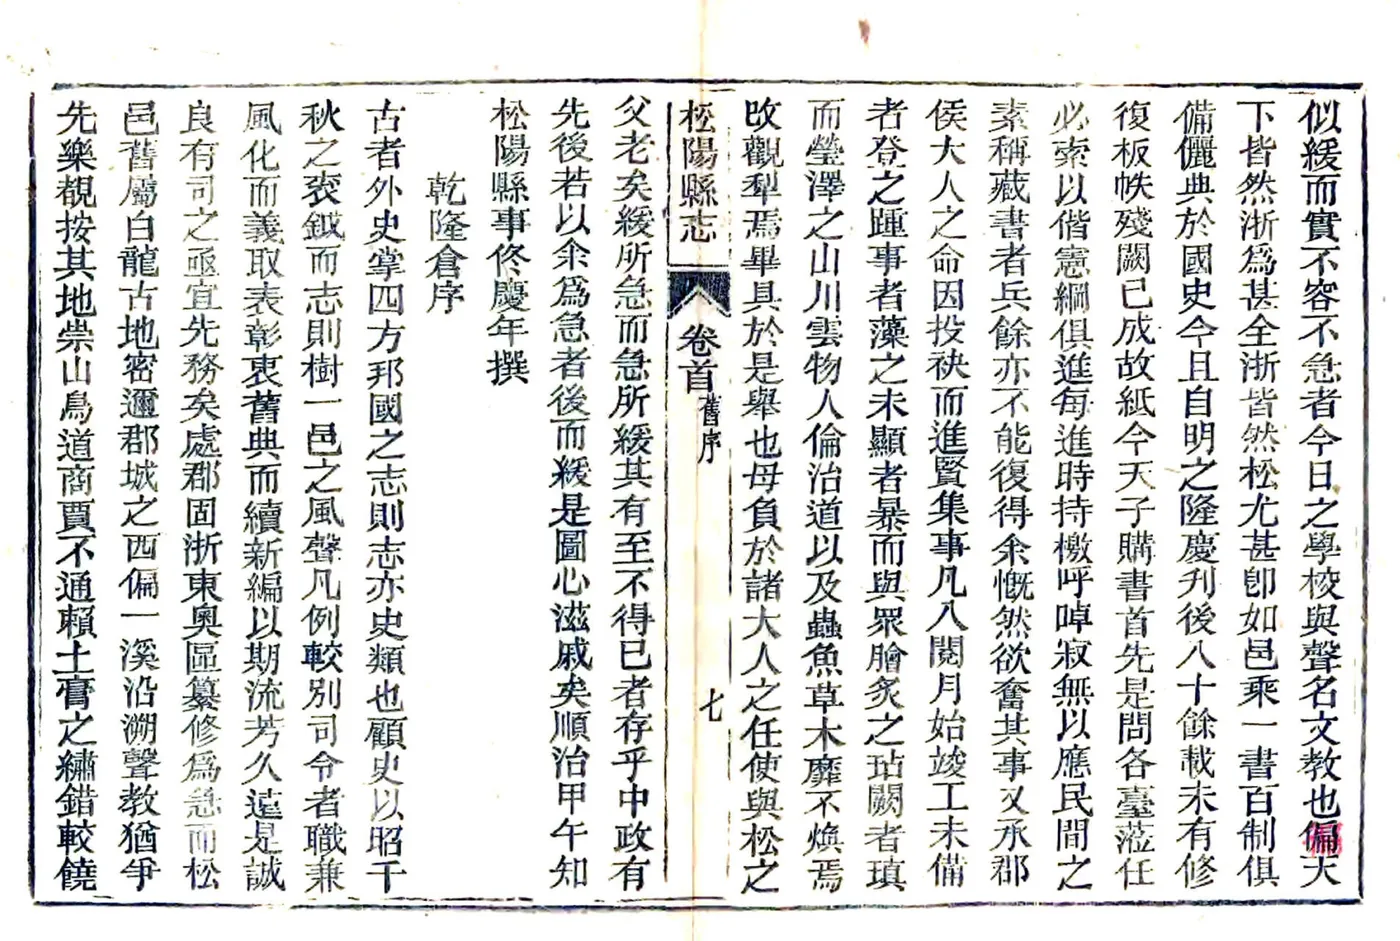 似緩而實不容不急者今日之學校與聲名文教也偏天
下皆然浙爲甚全浙皆然松尤甚卽如邑乘一書百制俱
備儷典於國史今且自明之隆慶刋後八十餘載未有修
復板帙殘闕已成故紙今天子購書首先是問各臺蒞任
必索以偕憲綱俱進每進時持檄呼啅寂無以應民間之
素稱藏書者兵餘亦不能復得余慨然欲奮其事又承郡
侯大人之命因投袂而進賢集事凡八閱月始竣工未備
者登之踵事者藻之未顯者暴而與眾膾炙之玷闕者瑱
而瑩澤之山川雲物人倫治道以及蟲魚草木靡不煥焉
改觀犁焉畢具於是舉也毋負於諸大人之任使與松之
松陽縣志
卷首
舊序
七
父老矣緩所急而急所緩其有至不得已者存乎中政有
先後若以余爲急者後而緩是圖心滋戚矣順治甲午知
松陽縣事佟慶年撰
乾隆倉序
古者外史掌四方邦國之志則志亦史類也顧史以昭千
秋之衮鉞而志則樹一邑之風聲凡例較別司令者職兼
風化而義取表彰裒舊典而續新編以期流芳久遠是誠
良有司之亟宜先務矣處郡固浙東奧區纂修爲急而松
邑舊屬白龍古地密邇郡城之西偏一溪沿溯聲教猶爭
先樂覩按其地崇山鳥道商賈不通賴土膏之繡錯較饒